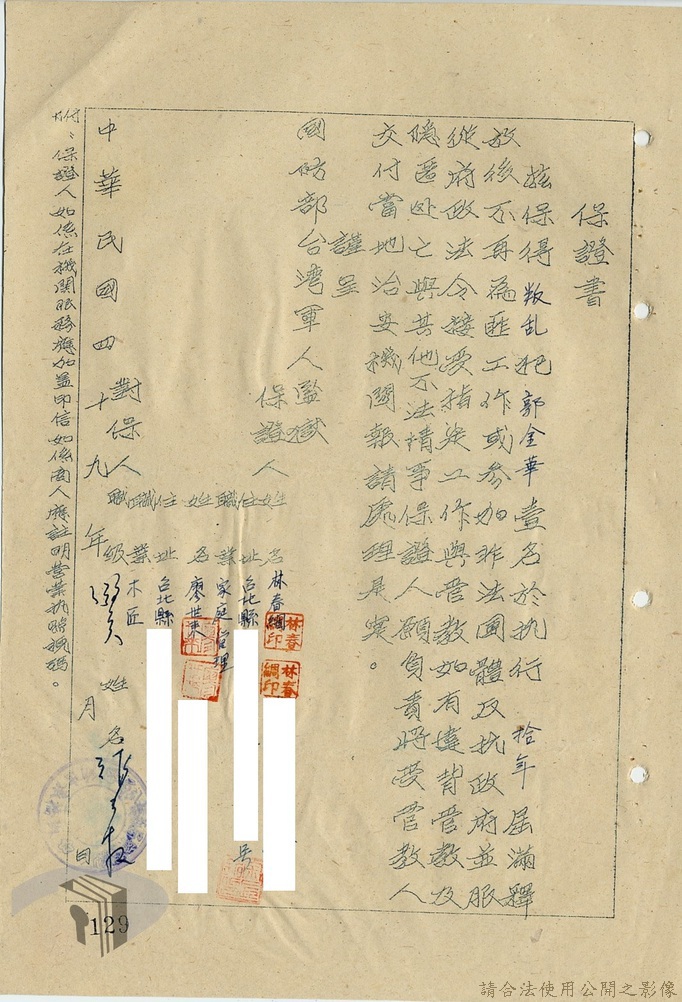 保證書
茲保得叛乱犯郭金華壹名於执行拾年屆滿釋
放後不再為匪工作或參加非法团體及抗政府並服
從府政法令接受指導工作與管教如有違背管教及
隱匿处亡與其他不法情事保證人願負責將受管教人
交付當地治安機関報請處理是實。
謹呈
國防部台湾軍人監獄
保證人
姓名 林春綢
林春綢印
林春綢印
住址 台北縣 号
職業 家庭管理
姓名 廖世東
住址 台北縣
職業 木匠
對保人
職級
姓名
中華民國四十九年 月 日
附：保證人如係在機関服務應加蓋印信如係商人應註明营業执照號碼。
129
請合法使用公開之影像